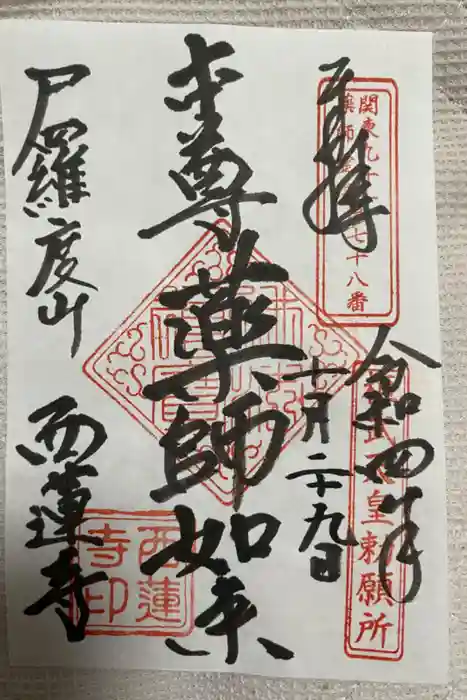 奉拝
関東九
薬師
七十八番
令和四年
十月二十九日
武天皇勅願所
本尊薬師如来
尸羅度山
西蓮寺
西蓮寺印